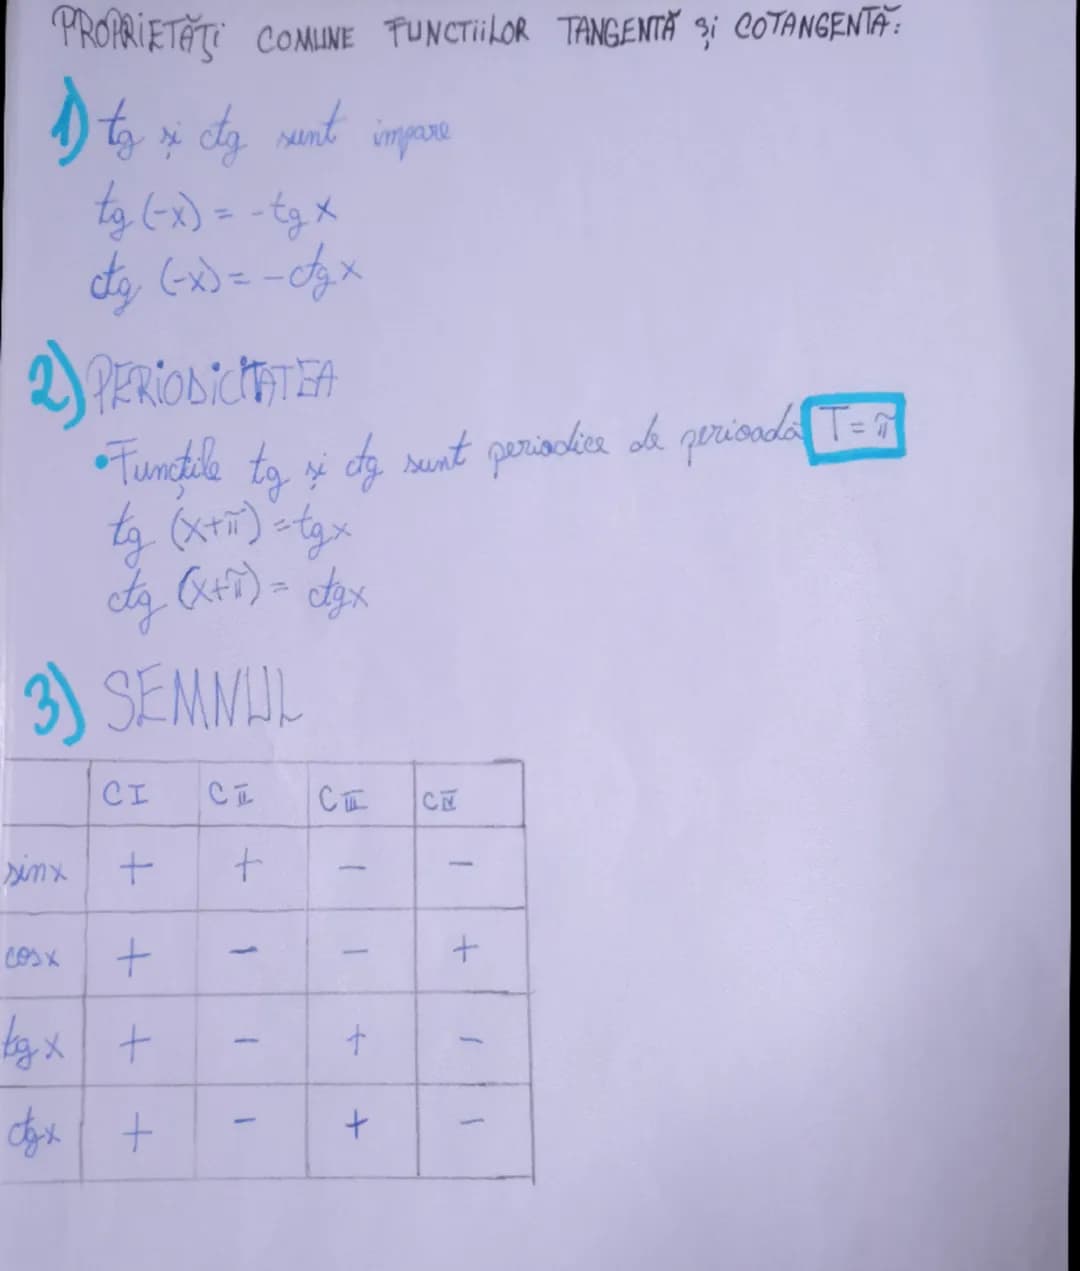 PROPRIETĂȚI COMUNE FUNCTIILOR TANGENTĂ și COTANGENTĂ:
1) tg și ctg sunt impare
tg (-x) = -tg x
ctg (-x) = -ctg x
2) PERIODICITATEA
•Funcțile tg și ctg sunt periodice de perioadă T = π
tg (x+π) = tgx
ctg (x+π) = ctgx
3) SEMNUL
C I C II C III C IV
sinx + + - -
cosx + - - +
tg x + - + -
ctgx + - + -